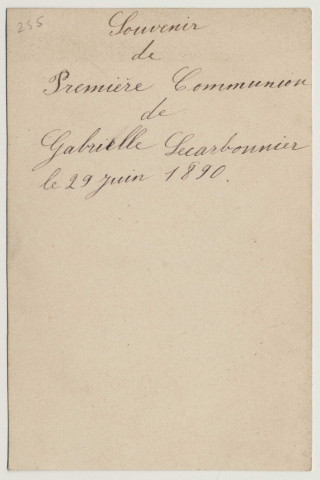 255
Souvenir
de
Première Communion
de
Gabrielle Lecarbonnier
le 29 juin 1890.